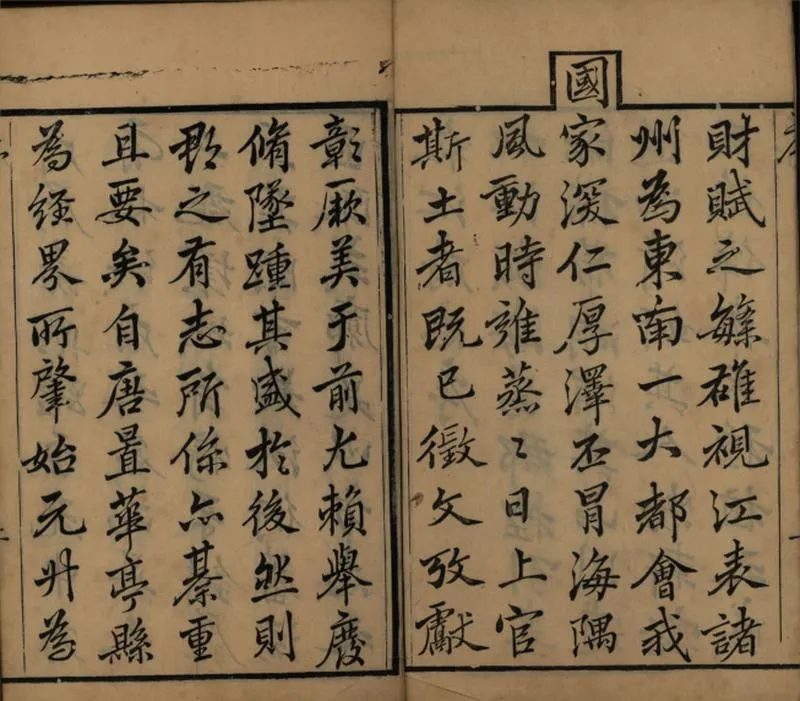 財賦之緐雄視江表諸
州為東南一大都會我
國家深仁厚澤丕冒海隅
風動時雍蒸〻日上官
斯土者既已徵文攷獻
彰厥美于前尤賴舉廢
脩墜踵其盛於後然則
郡之有志所係亦綦重
且要矣自唐置華亭縣
為經界所肇始元升為